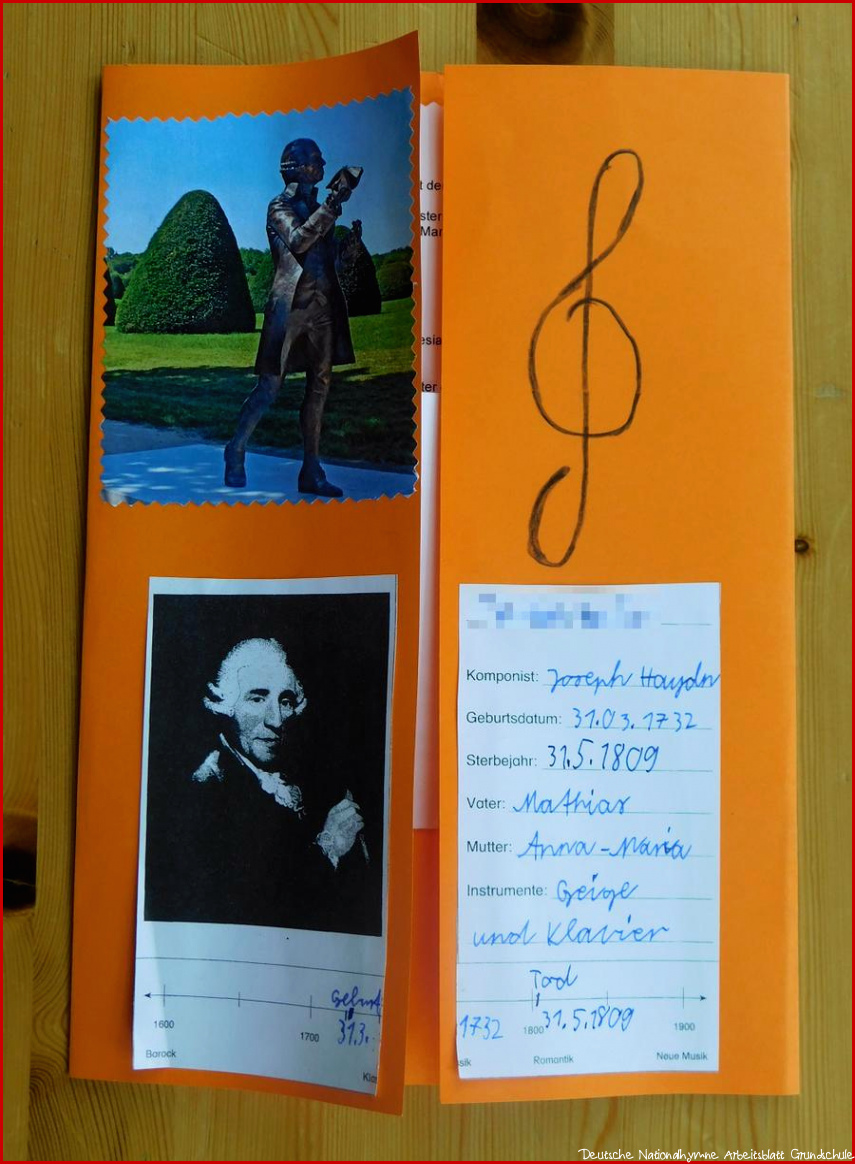 t de
ster
Mar
esia
ter
Komponist: Joseph Haydn
Geburtsdatum: 31.03.1732
Sterbejahr: 31.5.1809
Vater: Mathias
Mutter: Anna-Maria
Instrumente: Geige
und Klavier
Geburt
31.3.
1600
1700
Barock
Klas
Tod
1732
1800
31.5.1809
1900
sik
Romantik
Neue Musik
Deutsche Nationalhymne Arbeitsblatt Grundschule